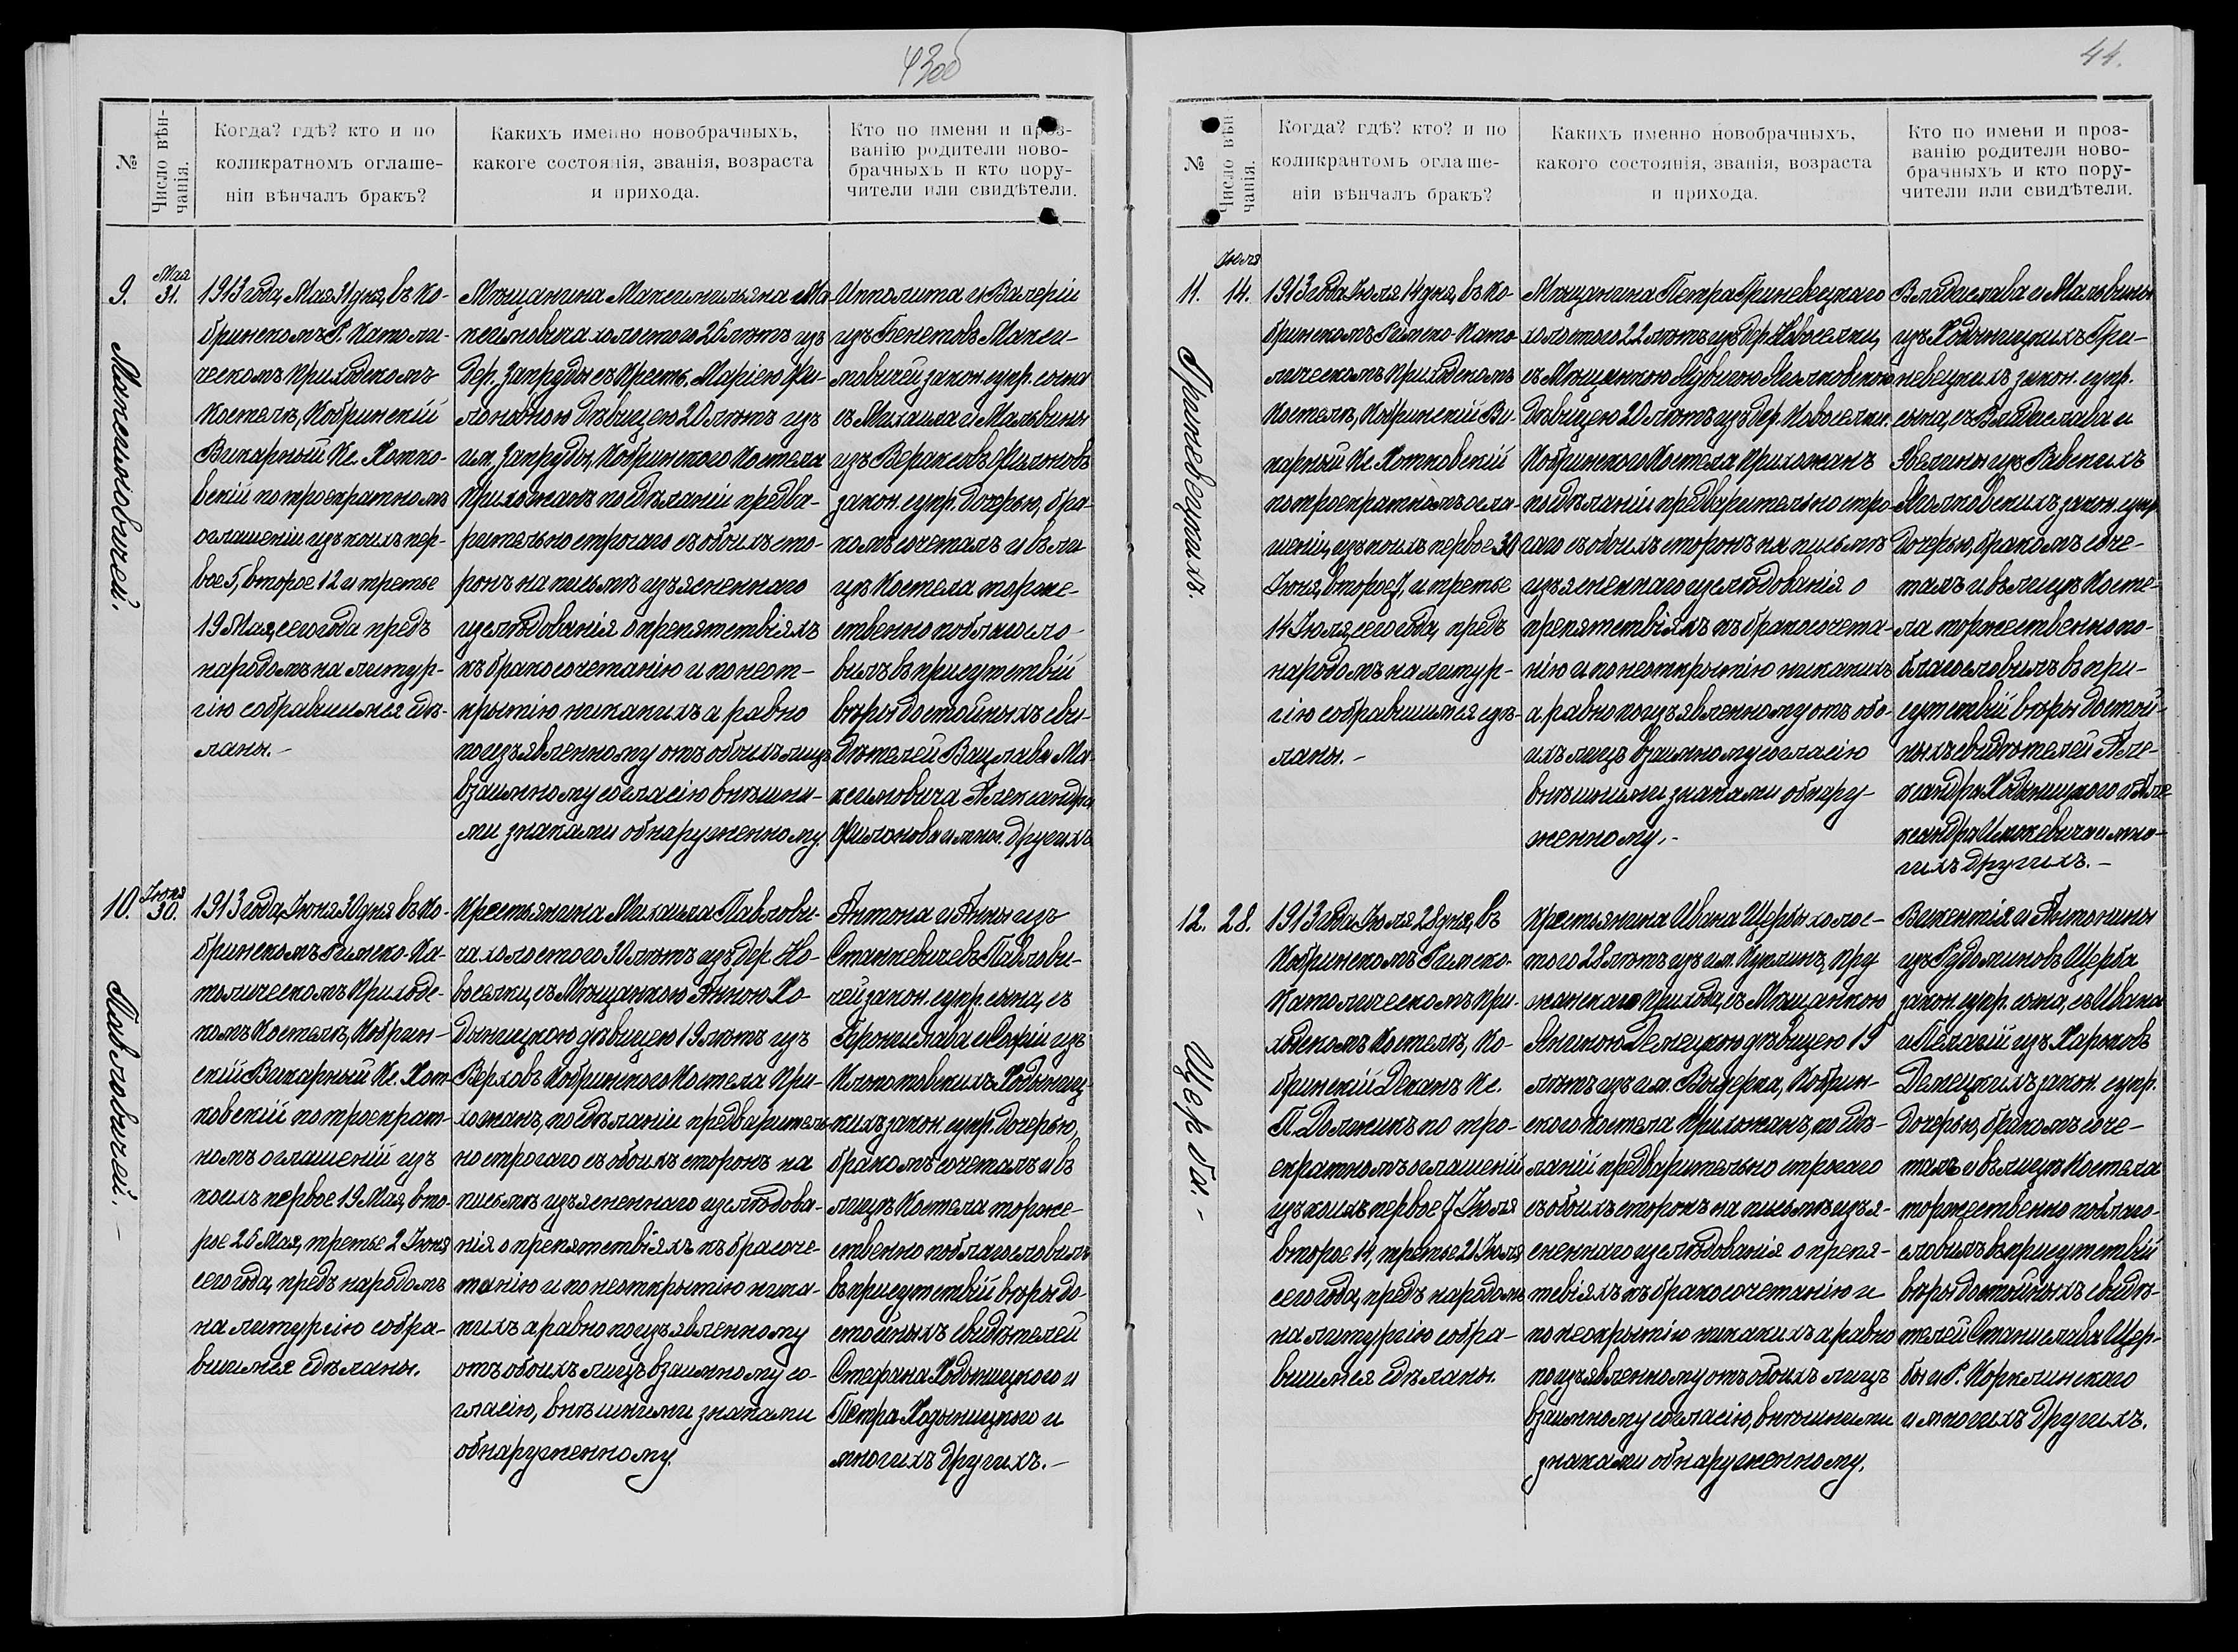 43об
№
Число вѣнчанія.
Когда? гдѣ? кто и по
коликратномъ оглаше-
ніи вѣнчалъ бракъ?
Какихъ именно новобрачныхъ,
какоге состоянія, званія, возраста
и прихода.
Кто по имени и проз-
ванію родители ново-
брачныхъ и кто пору-
чители или свидѣтели.
9.
Мая
31.
Максимовичей.
1913 года, Мая 31 дня, въ Ко-
бринскомъ Р. Католи-
ческомъ Приходскомъ
Костелѣ, Кобринскій
Викарный Кс. Хотко-
вскій по троекратномъ
оглашеніи изъ коихъ пер-
вое 5, второе 12 и третье
19 Мая, сего года предъ
народомъ на литур-
гію собравшимся сдѣ-
ланы.-
Мѣщанина Максимильяна Ма-
ксимовича холостого 26 лѣтъ изъ
дер. Запруды съ Крест. Маріею Фи-
лоновною дѣвицею 20 лѣтъ изъ
им. Запруды, Кобринскаго Костела
Прихожанъ по сдѣланіи предва-
рительно строгаго съ обоихъ сто-
ронъ на письмѣ изъясненнаго
изслѣдованія о препятствіяхъ
къ бракосочетанію и по неот-
крытію никакихъ а равно
по изъявленному отъ обоихъ лицъ
взаимному согласію внѣшни-
ми знаками обнаруженному.
Ипполита и Валеріи
изъ Бенетовъ Макси-
мовичей закон. супр. сына
съ Михаила и Мальвины
изъ Вераксовъ Филоновъ
закон. супр. дочерью, бра-
комъ сочеталъ и въ ли
цѣ Костела торже-
ственно поблагосло-
вилъ въ присутствіи
вѣры достойныхъ сви-
дѣтелей Вацлава Ма-
ксимовича Александра
Филонова и мног. другихъ
10.
Іюня
30.
Павловичей.-
1913 года, Іюня 30 дня въ Ко-
бринскомъ Римско-Ка-
толическомъ Приходс-
комъ Костелѣ, Кобрин-
скій Викарный Кс. Хот-
ковскій по троекрат-
номъ оглашеніи изъ
коихъ первое 19 Мая, вто-
рое 26 Мая, третье 2 Іюня
сего года, предъ народомъ
на литургію собра-
вшимся сдѣланы.
Крестьянина Михаила Павлови-
ча холостого 30 лѣтъ изъ дер. Но-
воселки, съ Мѣщанкою Анною Хо-
дыницкою дѣвицею 19 лѣтъ изъ
Верховъ Кобринскаго Костела При-
хожанъ, по сдѣланіи предваритель-
но строгаго съ обоихъ сторонъ на
письмѣ изъясненнаго изслѣдова-
нія о препятствіяхъ къ брасоче-
танію и по неоткрытію ника-
кихъ а равно по изъявленному
отъ обоихъ лицъ взаимному со-
гласію, внѣшними знаками
обнаруженному.
Антона и Анны изъ
Станкевичевъ Павлови-
чей закон. супр. сына, съ
Бронислава и Софіи изъ
Клокотовскихъ Ходыниц-
кихъ закон. супр. дочерью,
бракомъ сочеталъ и въ
лицѣ Костела торже-
ственно поблагословилъ
въ присутствіи вѣры до-
стойныхъ свидѣтелей
Стефана Ходыницкого и
Петра Ходыницкого и
многихъ другихъ.-
44.
№
Число вѣнчанія.
Когда? гдѣ? кто? и по
коликрантомъ оглаше-
ніи вѣнчалъ бракъ?
Какихъ именно новобрачныхъ,
какого состоянія, званія, возраста
и прихода.
Кто по имени и проз-
ванію родители ново-
брачныхъ и кто пору-
чители или свидѣтели.
11.
Іюля
14.
Гриневецкихъ.
1913 года Іюля 14 дня, въ Ко-
бринскомъ Римско-Като-
лическомъ Приходскомъ
Костелѣ, Кобринскій Ви-
карный Кс. Хотковскій
по троекратномъ огла-
шеніи, изъ коихъ первое 30
Іюня, второе 7, и третье
14 Іюля, сего года, предъ
народомъ на литур-
гію собравшимся сдѣ-
ланы.-
Мѣщанина Петра Гриневецкаго
холостого 22 лѣтъ изъ дер. Новоселки,
съ Мѣщанкою Ядвигою Яголковскою
дѣвицею 20 лѣтъ изъ дер. Новоселки.
Кобринскаго Костела Прихожанъ
по сдѣланіи предварительно стро-
гаго съ обоихъ сторонъ на письмѣ
изъясненнаго изслѣдованія о
препятствіяхъ къ бракосочета-
нію и по неоткрытію никакихъ
а равно по изъявленному отъ обо-
ихъ лицъ взаимному согласію
внѣшними знаками обнару-
женному.-
Владислава и Мальвины
изъ Ходыницкихъ Гри-
невецкихъ закон. супр.
сына, съ Владислава и
Эвелины изъ Равскихъ
Яголковскихъ закон. супр
дочерью, бракомъ соче-
талъ и въ лицѣ Косте-
ла торжественно по-
благословилъ въ при-
сутствіи вѣры достой-
ныхъ свидѣтелей Але-
ксандра Ходыницкого и Але
ксандра и мно-
гихъ другихъ.-
12.
28.
Щерба.-
1913 года Іюля 28 дня, въ
Кобринскомъ Римско-
Католическомъ При-
ходскомъ Костелѣ, Ко-
бринскій Деканъ Кс.
П. Должикъ по тро-
екратномъ оглашеніи
изъ коихъ первое 7 Іюля
второе 14, третье 21 Іюля
сего года, предъ народомъ
на литургію собра-
вшимся сдѣланы.
Крестьянина Ивана Щербы холос-
того 28 лѣтъ изъ им. Куклинъ, Пру
жанскаго Прихода, съ Мѣщанкою
Яниною Демецкою дѣвицею 19
лѣтъ изъ им. Быцерка, Кобрин-
скаго Костела Прихожанъ, по сдѣ-
ланіи предварительно строгаго
съ обоихъ сторонъ на письмѣ изъя-
сненнаго изслѣдованія о препя-
тствіяхъ къ бракосочетанію и
по неокрытію никакихъ а равно
по изъявленному отъ обоихъ лицъ
взаимному согласію, внѣшними
знаками обнаруженному.
Викентія и Антонины
изъ Рудоминовъ Щерба
закон. супр. сына, съ Ивана
и Пелагіи изъ Харьковъ
Демецкихъ закон. супр.
дочерью, бракомъ соче-
талъ и въ лицѣ Костела
торжественно поблаго-
словилъ въ присутствіи
вѣры достойныхъ свидѣ-
телей Станислава Щер-
бы и Р. Корклинскаго
и многихъ другихъ.